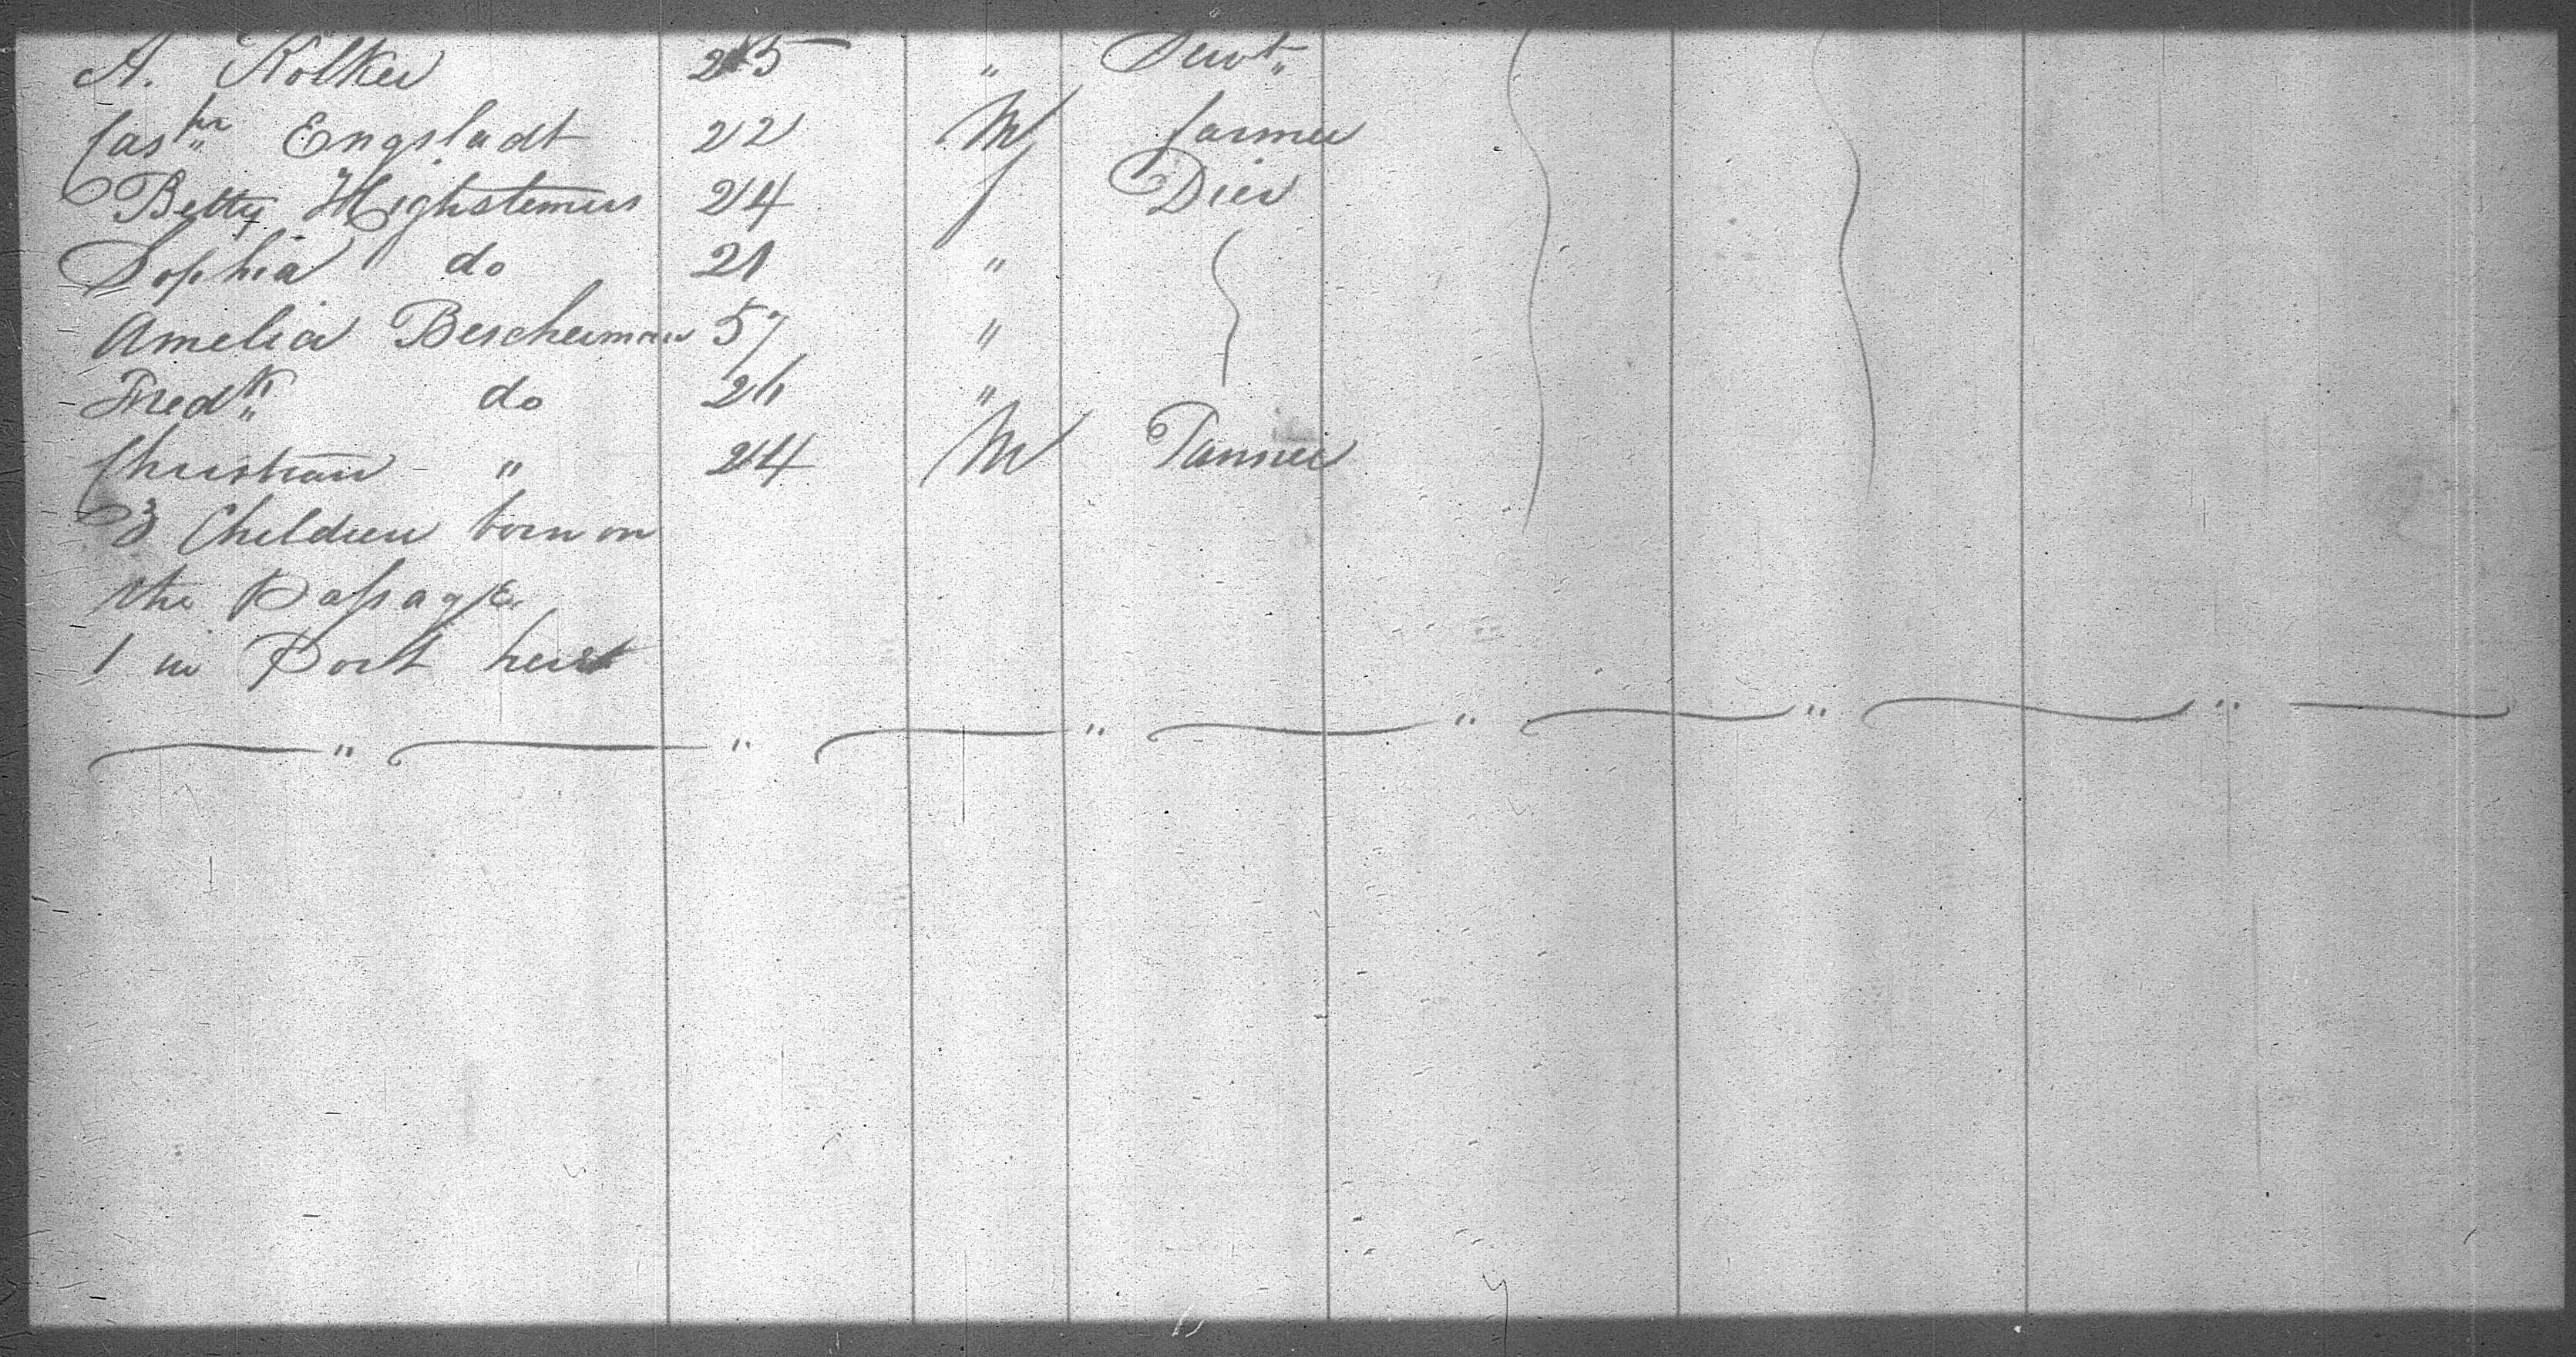 A. Kolker 25 " Servt
Casp^r Engstadt 22 M farmer
Betty Highstemus 24 f Dier
Sophia do 21 "
Amelia Bescherman 57 "
Fred^k do 26 "
Christian " 24 M Tanner
3 Children born on
the Passage
1 in Port here